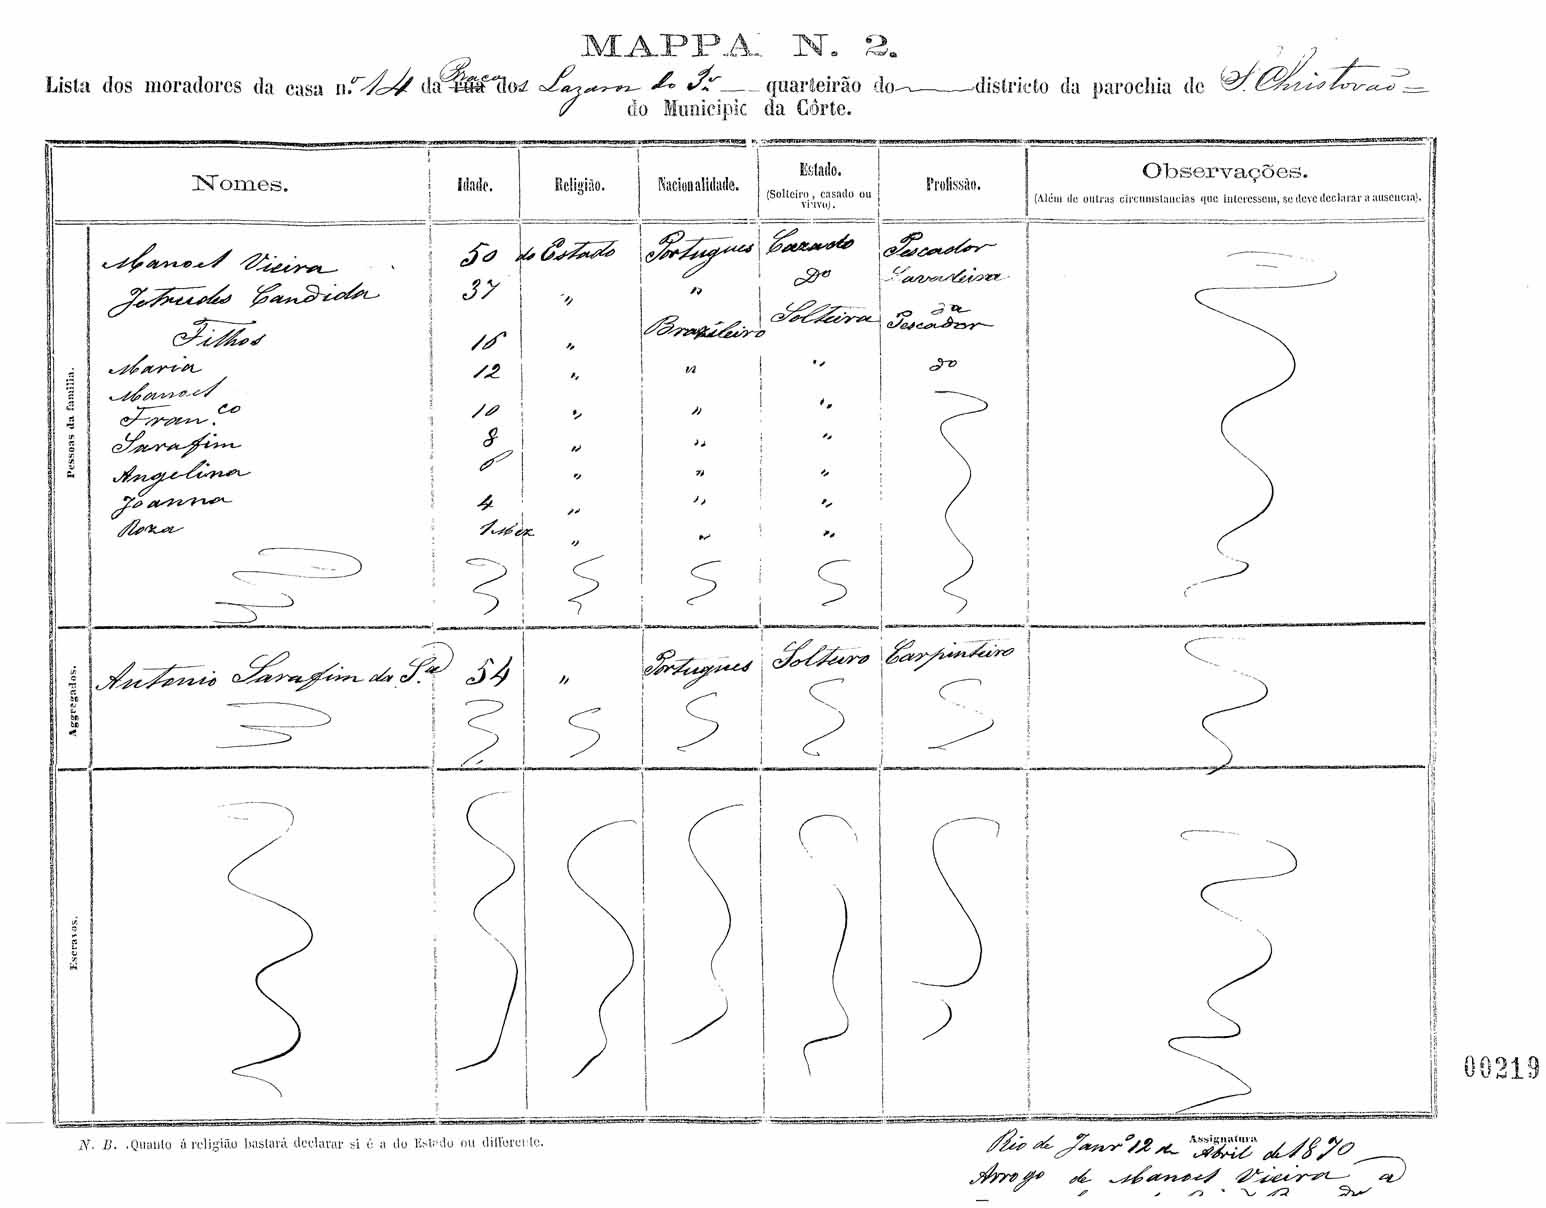 MAPPA N. 2.
Lista dos moradores da casa n.º 14 da rua Praca dos Lazaros do 3.º quarteirão do districto da parochia de S. Christovão
do Municipio da Côrte.
Nomes. Idade. Religião. Nacionalidade. Estado. (Solteiro, casado ou viuvo). Profissão. Observações. (Além de outras circumstancias que interessem, se deve declarar a ausencia).
Pessoas da familia.
Manoel Vieira 50 do Estado Portugues Cazado Pescador
Jetrudes Candida 37 " " Do Lavadeira
Filhos 16 " Brazileiro Solteira Pescador
Maria 12 " " " do
Manoel
Fran.co 10 " " "
Sarafim 8 " " "
Angelina 6 " " "
Joanna 4 " " "
Roza 1 Mez " " "
Aggregados.
Antonio Sarafim da S.a 54 " Portugues Solteiro Carpinteiro
Escravos.
00219
N. B. Quanto á religião bastará declarar si é a do Estado ou differente.
Assignatura
Rio de Janr.o 12 de Abril de 1870
Arrogo de Manoel Vieira